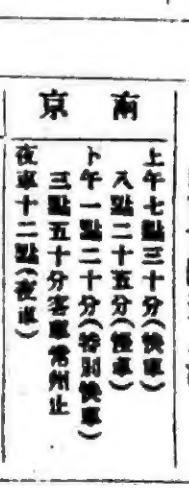 南京
上午七點三十分(快車)
八點二十五分(慢車)
下午一點二十分(特別快車)
三點五十分客車常州止
夜車十二點(夜車)